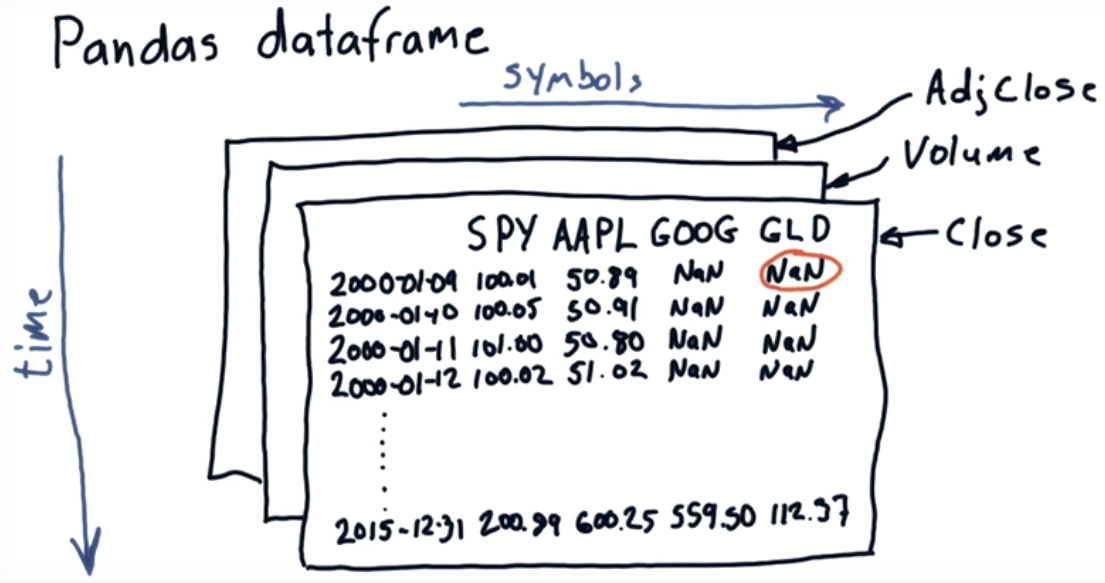 Pandas dataframe
symbols
AdjClose
Volume
Close
time
SPY AAPL GOOG GLD
2000-01-09 100.01 50.89 NaN NaN
2000-01-10 100.05 50.91 NaN NaN
2000-01-11 101.00 50.80 NaN NaN
2000-01-12 100.02 51.02 NaN NaN
2015-12-31 200.99 600.25 559.50 112.37